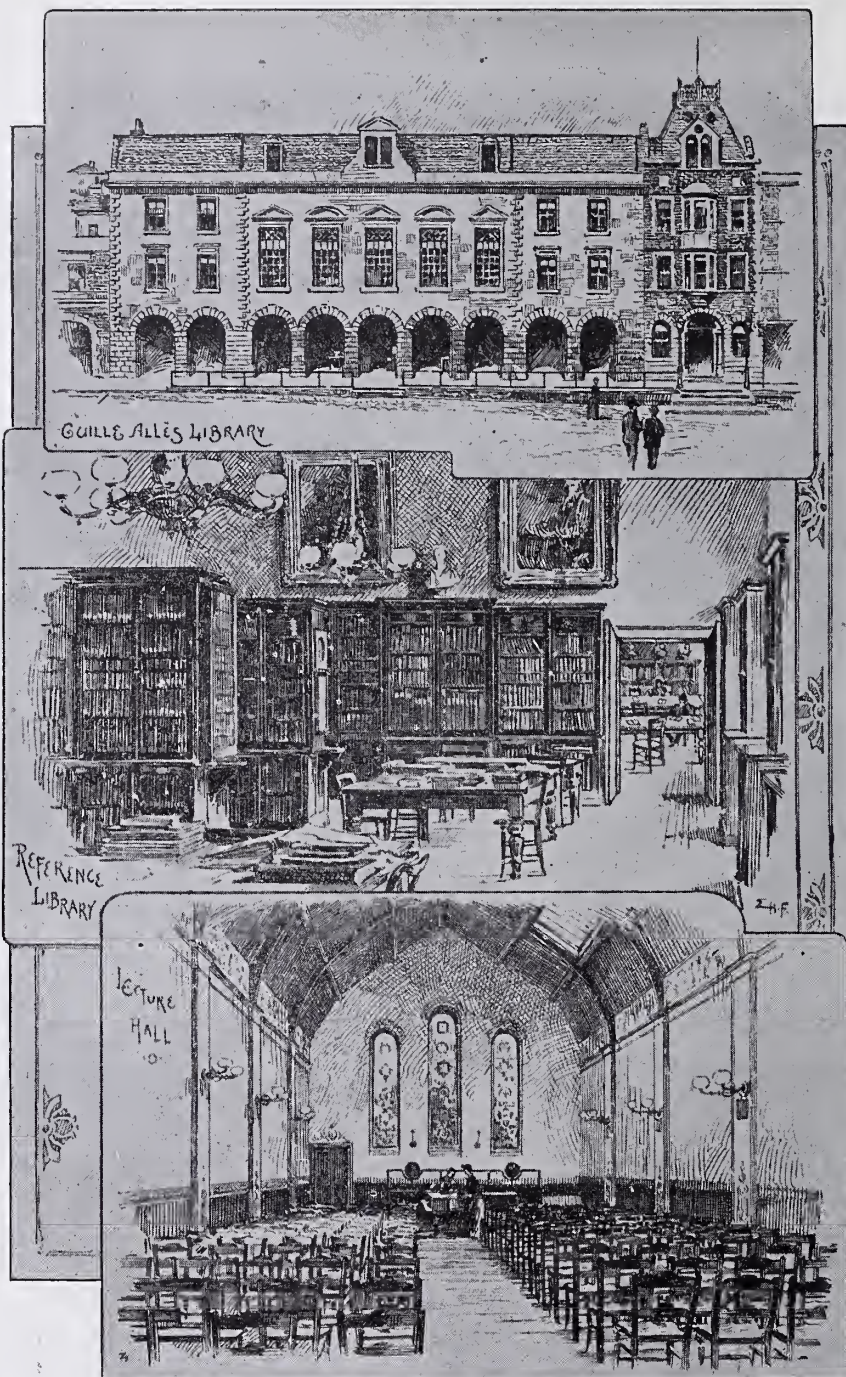 GUILLE ALLÈS LIBRARY
REFERENCE
LIBRARY
E.H.F.
LECTURE
HALL